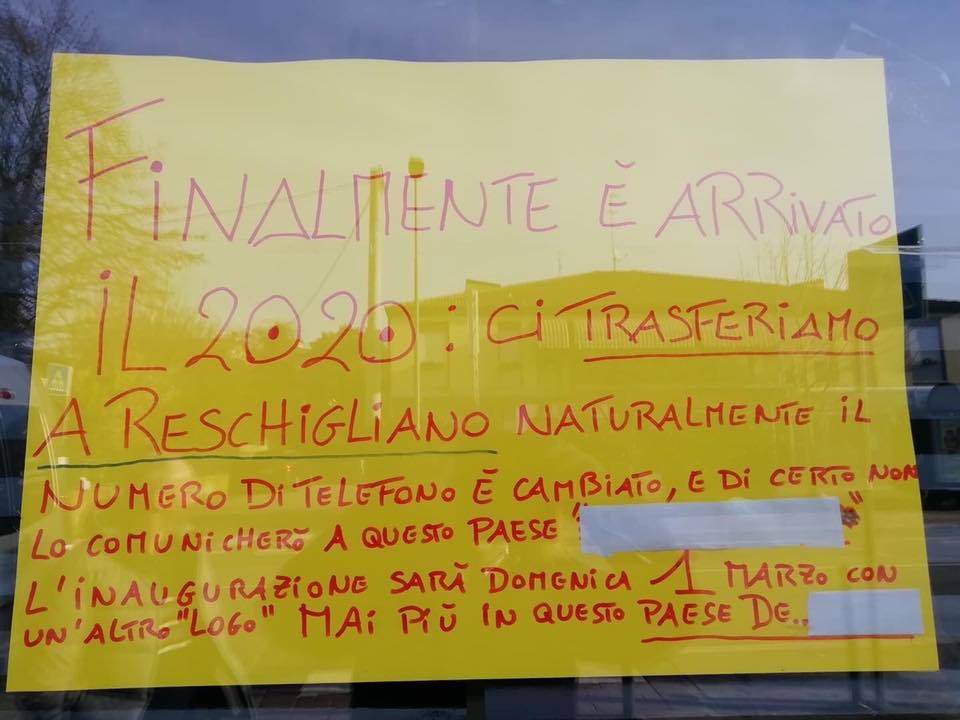 FINALMENTE È ARRIVATO
IL 2020: CI TRASFERIAMO
A RESCHIGLIANO NATURALMENTE IL
NUMERO DI TELEFONO È CAMBIATO, E DI CERTO NON
LO COMUNICHERÒ A QUESTO PAESE " "
L'INAUGURAZIONE SARÀ DOMENICA 1 MARZO CON
UN'ALTRO "LOGO" MAI PIÙ IN QUESTO PAESE DE..